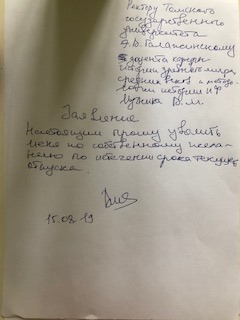 Ректору Томского
государственного
университета
Э.В. Галажинскому
доцента кафедры
истории древнего мира,
средних веков и методо-
логии истории ИФ
В.М.
Заявление
Настоящим прошу уволить
меня по собственному жела-
нию по истечении срока текущего
отпуска.
15.08.19